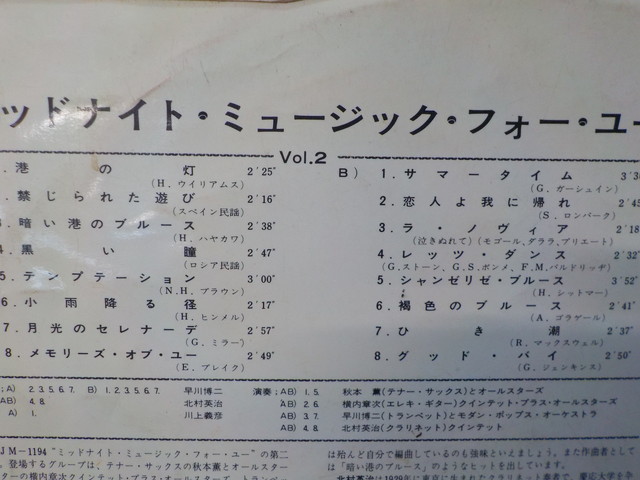 ッドナイト・ミュージック・フォー・ユー
Vol.2
港の灯 2′25″
(H. ウイリアムス)
禁じられた遊び 2′16″
(スペイン民謡)
暗い港のブルース 2′38″
(H. ハヤカワ)
4. 黒い瞳 2′47″
(ロシア民謡)
5. テンプテーション 3′00″
(N.H. ブラウン)
6. 小雨降る径 2′17″
(H. ヒンメル)
7. 月光のセレナーデ 2′57″
(G. ミラー)
8. メモリーズ・オブ・ユー 2′49″
(E. ブレイク)
B) 1. サマータイム
(G. ガーシュイン)
2. 恋人よ我に帰れ
(S. ロンバーク)
3. ラ・ノヴィア 2′18
(泣きぬれて) (モゴール、ダララ、プリエート)
4. レッツ・ダンス 2′32″
(G.ストーン、G.S.ボンメ、F.M.バルドリッヂ)
5. シャンゼリゼ・ブルース 3′52″
(H. シットマー)
6. 褐色のブルース 2′41″
(A. ゴラゲール)
7. ひき潮 2′37″
(R. マックスウェル)
8. グッド・バイ 2′50″
(G. ジェンキンス)
;A) 2.3.5.6.7. B) 1.2.3.5.6.7. 早川博二
4.8. 北村英治
A) 1. 川上義彦
演奏; AB) 1.5. 秋本 薫(テナー・サックス)とオールスターズ
AB) 2.6. 横内章次(エレキ・ギター)クインテット・プラス・オールスターズ
AB) 3.7. 早川博二(トランペット)とモダン・ポップス・オーケストラ
AB) 4.8. 北村英治(クラリネット)クインテット
JM-1194 “ミッドナイト・ミュージック・フォー・ユー” の第二
。登場するグループは、テナー・サックスの秋本薫とオールスター
は殆んど自分で編曲しているのも強味といえましょう。また作曲者として
は「暗い港のブルース」のようなヒットを出しています。